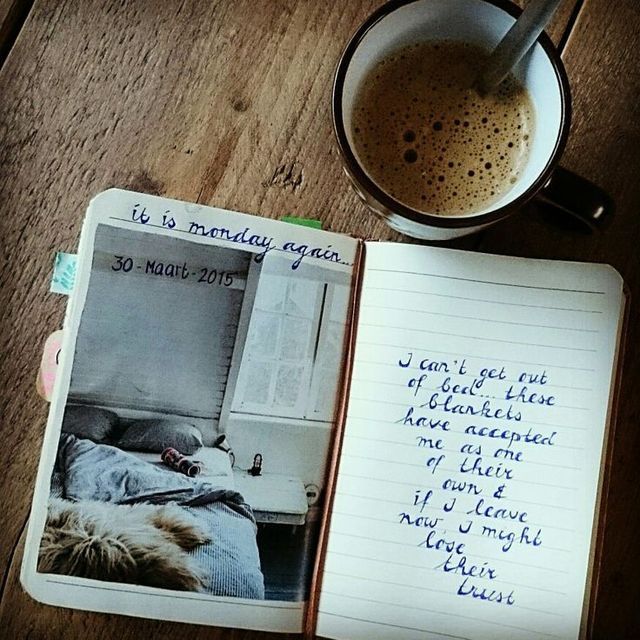 it is monday again...
30-Maart-2015
I can't get out
of bed... these
blankets
have accepted
me as one
of their
own &
if I leave
now I might
lose
their
trust